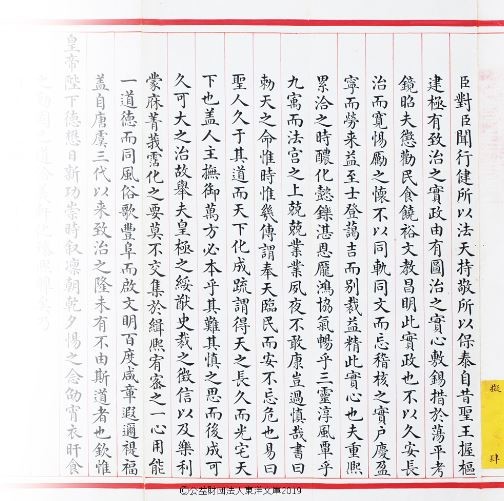 臣對臣聞行健所以法天持敬所以保泰自昔聖王握樞
建極有致治之實政由有圖治之實心敷錫措於蕩平考
鏡昭夫懲勸民食饒裕文教昌明此實政也不以久安長
治而寬惕勵之懷不以同軌同文而忘稽核之實戶慶盈
寧而勞來益至士登藹吉而别裁益精此實心也夫重熙
累洽之時醲化懿鑠湛恩龐鴻協氣暢乎三靈淳風覃乎
九寓而法宮之上兢兢業業夙夜不敢康豈過慎哉書曰
勅天之命惟時惟幾傳謂奉天臨民而安不忘危也易曰
聖人久于其道而天下化成疏謂得天之長久而光宅天
下也蓋人主撫御萬方必本乎其難其慎之思而後成可
久可大之治故舉夫皇極之綏猷史裁之徵信以及樂利
蒙庥菁莪霑化之要莫不交集於緝熙宥密之一心用能
一道德而同風俗歌豐阜而啟文明百度咸章遐邇禔福
蓋自唐虞三代以來致治之隆未有不由斯道者也欽惟
皇帝陛下德懋日新功崇時叙凜朝乾夕惕之念勵宵衣旰食
擬
肆
©公益財団法人東洋文庫2019